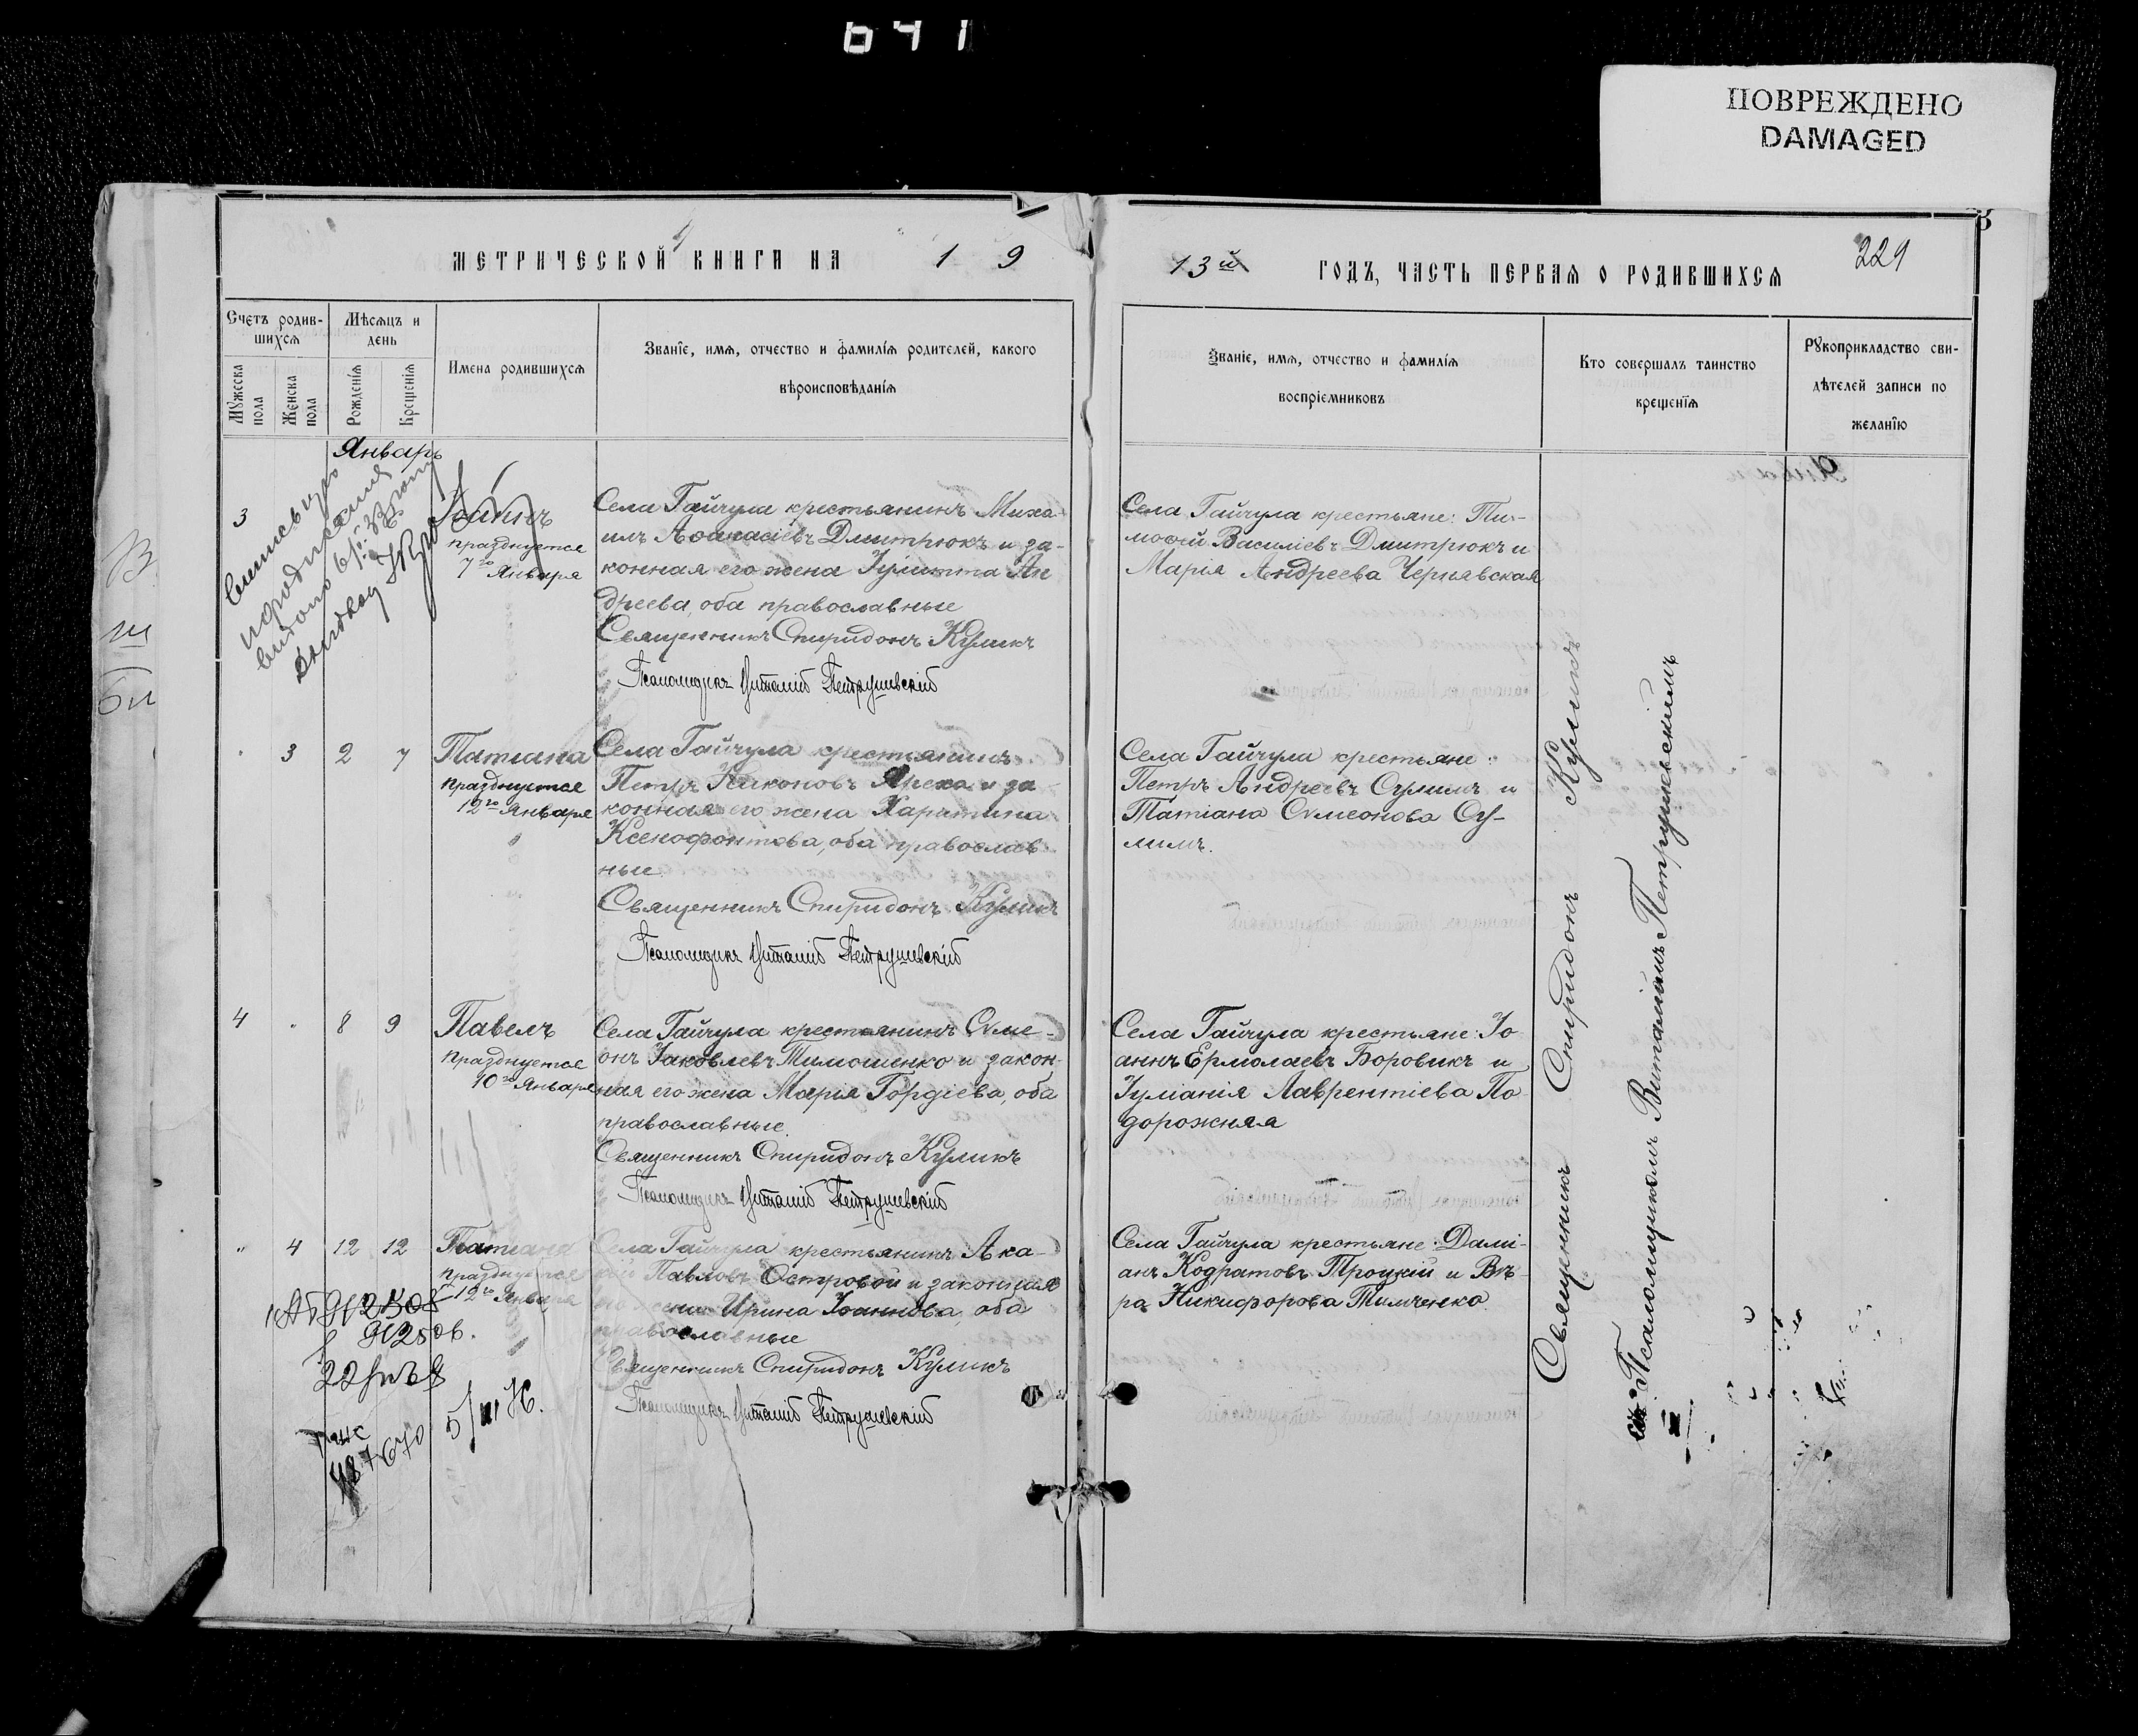 641
ПОВРЕЖДЕНО
DAMAGED
МЕТРИЧЕСКОЙ КНИГИ НА 1 9
13й ГОДЪ, ЧАСТЬ ПЕРВАЯ О РОДИВШИХСЯ
229
Счетъ родив-
шихся
Мѣсяцъ и
день
Мужеска
пола
Женска
пола
Рожденія
Крещенія
Имена родившихся
Званіе, имя, отчество и фамилія родителей, какого
вѣроисповѣданія
Званіе, имя, отчество и фамилія
воспріемниковъ
Кто совершалъ таинство
крещенія
Рукоприкладство сви-
дѣтелей записи по
желанію
Январь
3
Іоаннъ
празднуется
7го Января
Села Гайчула крестьянинъ Миха-
илъ Аѳанасіевъ Дмитрюкъ и за-
конная его жена Іулитта Ан
дреева, оба православные
Священникъ Спиридонъ Куликъ
Псаломщикъ Виталій Петрушевскій
Села Гайчула крестьяне: Ти-
моѳей Василіевъ Дмитрюкъ и
Марія Андреева Чернявская
3 2 7
Татіана
празднуется
12го Января
Села Гайчула крестьянинъ
Петръ Никоновъ Ярека и за
конная его жена Харитина
Ксенофонтова, оба православ
ные
Священникъ Спиридонъ Куликъ
Псаломщикъ Виталій Петрушевскій
Села Гайчула крестьяне:
Петръ Андреевъ Сулимъ и
Татіана Сѵмеонова Су-
лимъ.
4 " 8 9
Павелъ
празднуется
10го Января
Села Гайчула крестьянинъ Сѵме-
онъ Іаковлевъ Тимошенко и закон-
ная его жена Марія Гордіева, оба
православные.
Священникъ Спиридонъ Куликъ
Псаломщикъ Виталій Петрушевскій
Села Гайчула крестьяне: Іо
аннъ Ермолаевъ Боровикъ и
Іуліанія Лаврентіева По
дорожняя
" 4 12 12
Татіана
празднуется
12го Января
Села Гайчула крестьянинъ Ака-
кій Павловъ Островой и законная
его жена Ирина Іоаннова, оба
православные
Священникъ Спиридонъ Куликъ
Псаломщикъ Виталій Петрушевскій
Села Гайчула крестьяне: Дамі-
анъ Кодратовъ Троцкій и Вѣ-
ра Никифорова Тимченко.
Священникъ Спиридонъ Куликъ
съ Псаломщикомъ Виталіемъ Петрушевскимъ